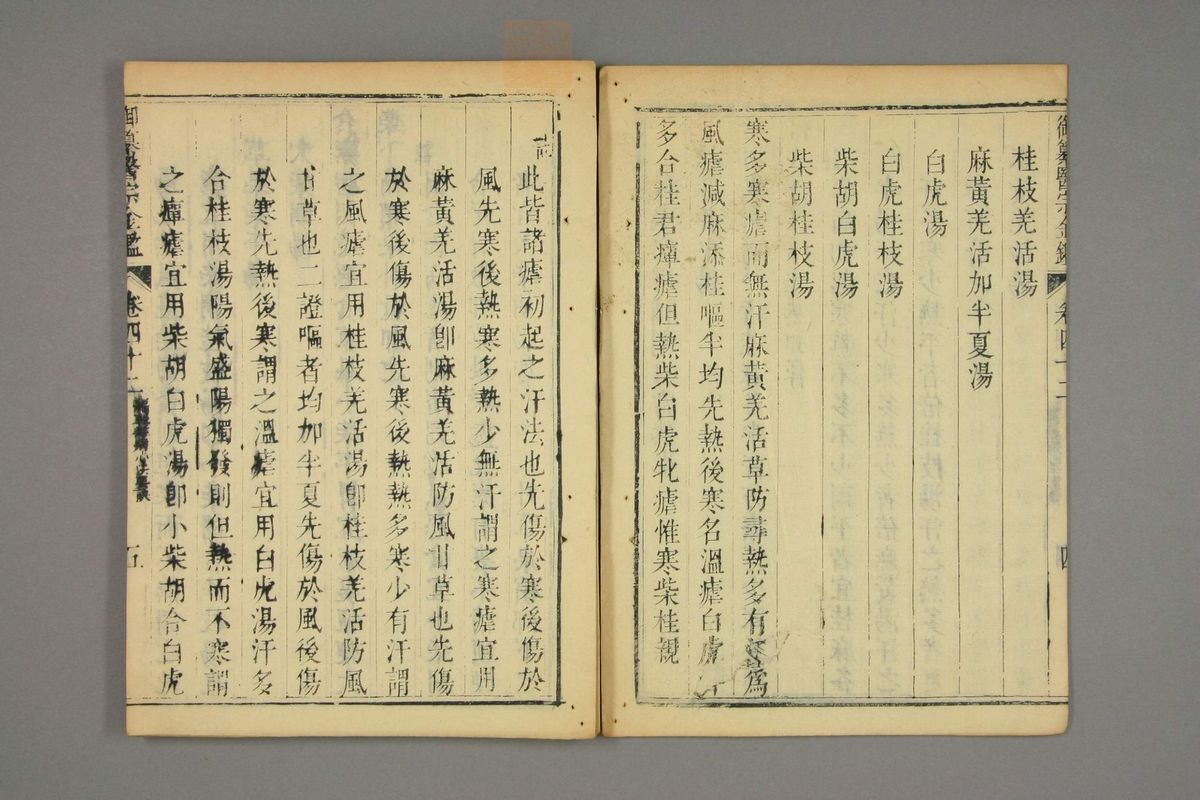 御纂醫宗金鑑 卷四十二 四
桂枝羌活湯
麻黃羌活加半夏湯
白虎湯
白虎桂枝湯
柴胡白虎湯
柴胡桂枝湯
寒多寒瘧而無汗麻黃羌活草防尋熱多有汗爲
風瘧減麻添桂嘔半均先熱後寒名溫瘧白虎
多合桂君癉瘧但熱柴白虎牝瘧惟寒柴桂親
註
此皆諸瘧初起之汗法也先傷於寒後傷於
風先寒後熱寒多熱少無汗謂之寒瘧宜用
麻黃羌活湯卽麻黃羌活防風甘草也先傷
於寒後傷於風先寒後熱熱多寒少有汗謂
之風瘧宜用桂枝羌活湯卽桂枝羌活防風
甘草也二證嘔者均加半夏先傷於風後傷
於寒先熱後寒謂之溫瘧宜用白虎湯汗多
合桂枝湯陽氣盛陽獨發則但熱而不寒謂
之癉瘧宜用柴胡白虎湯卽小柴胡合白虎
御纂醫宗金鑑 卷四十二 五